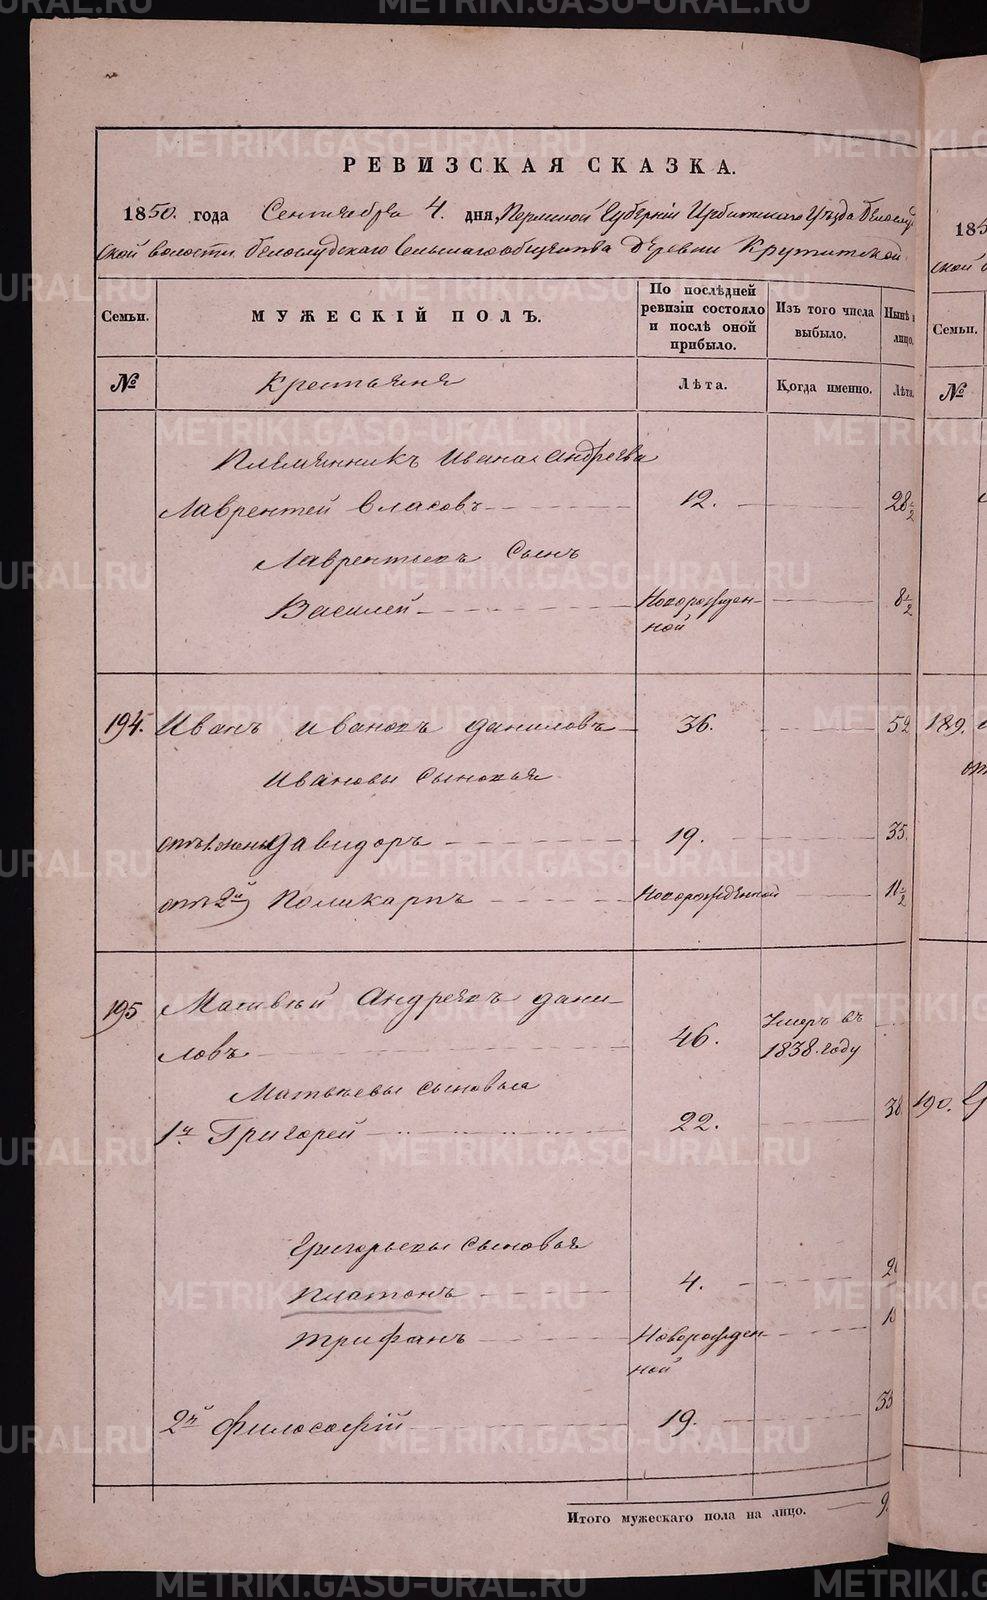 РЕВИЗСКАЯ СКАЗКА.
1850. года Сентября 4. дня, Пермской Губерніи Ирбитскаго Уѣзда Белослуд
ской волости. Белослудскаго Сельскаго общества Деревни Крутитской
Семьи.
МУЖЕСКІЙ ПОЛЪ.
По послѣдней
ревизіи состояло
и послѣ оной
прибыло.
Изъ того числа
выбыло.
Нынѣ н
лицо.
№
Крестьяня
Лѣта.
Когда именно.
Лѣта.
Племянникъ Ивана Андреева
Лаврентей Власовъ 12. 28 1/2
Лаврентьевъ Сынъ
Василей Новорожден- 8 1/2
ной
194. Иванъ Ивановъ Даниловъ 36. 52
Ивановы Сыновья
отъ 1. жены Давидоръ 19. 35.
отъ 2й Поликарпъ Новорожденной 11 1/2
195 Матвѣй Андреевъ Дани-
ловъ 46. Умеръ въ
1838. году
Матвѣевы Сыновья
1й Григорей 22. 38
Григорьевы Сыновья
Платонъ 4. 20
Трифанъ Новорожден
ной
2й Философій 19. 35
Итого мужескаго пола на лицо. 9
185
ской
Семьи.
№
189.
190.
METRIKI.GASO-URAL.RU